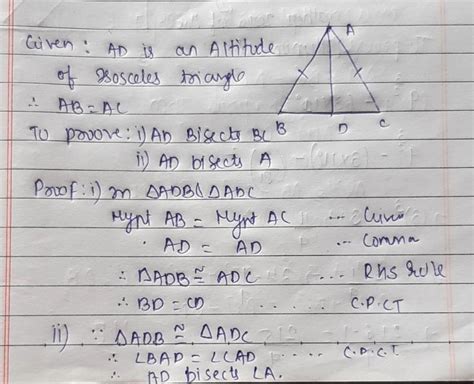 Given : AD is an Altitude
of Isosceles triangle
∴ AB = AC
To proove : i) AD Bisects BC
ii) AD bisects A
A
B D C
Proof : i) In ΔADB & ΔADC
Hypt AB = Hypt AC ... Given
AD = AD ... Common
∴ ΔADB ≅ ADC ... RHS rule
∴ BD = CD ...... C.P.CT
ii) ∵ ΔADB ≅ ΔADC
∴ ∠BAD = ∠CAD .... C.P.CT
∴ AD bisects ∠A.